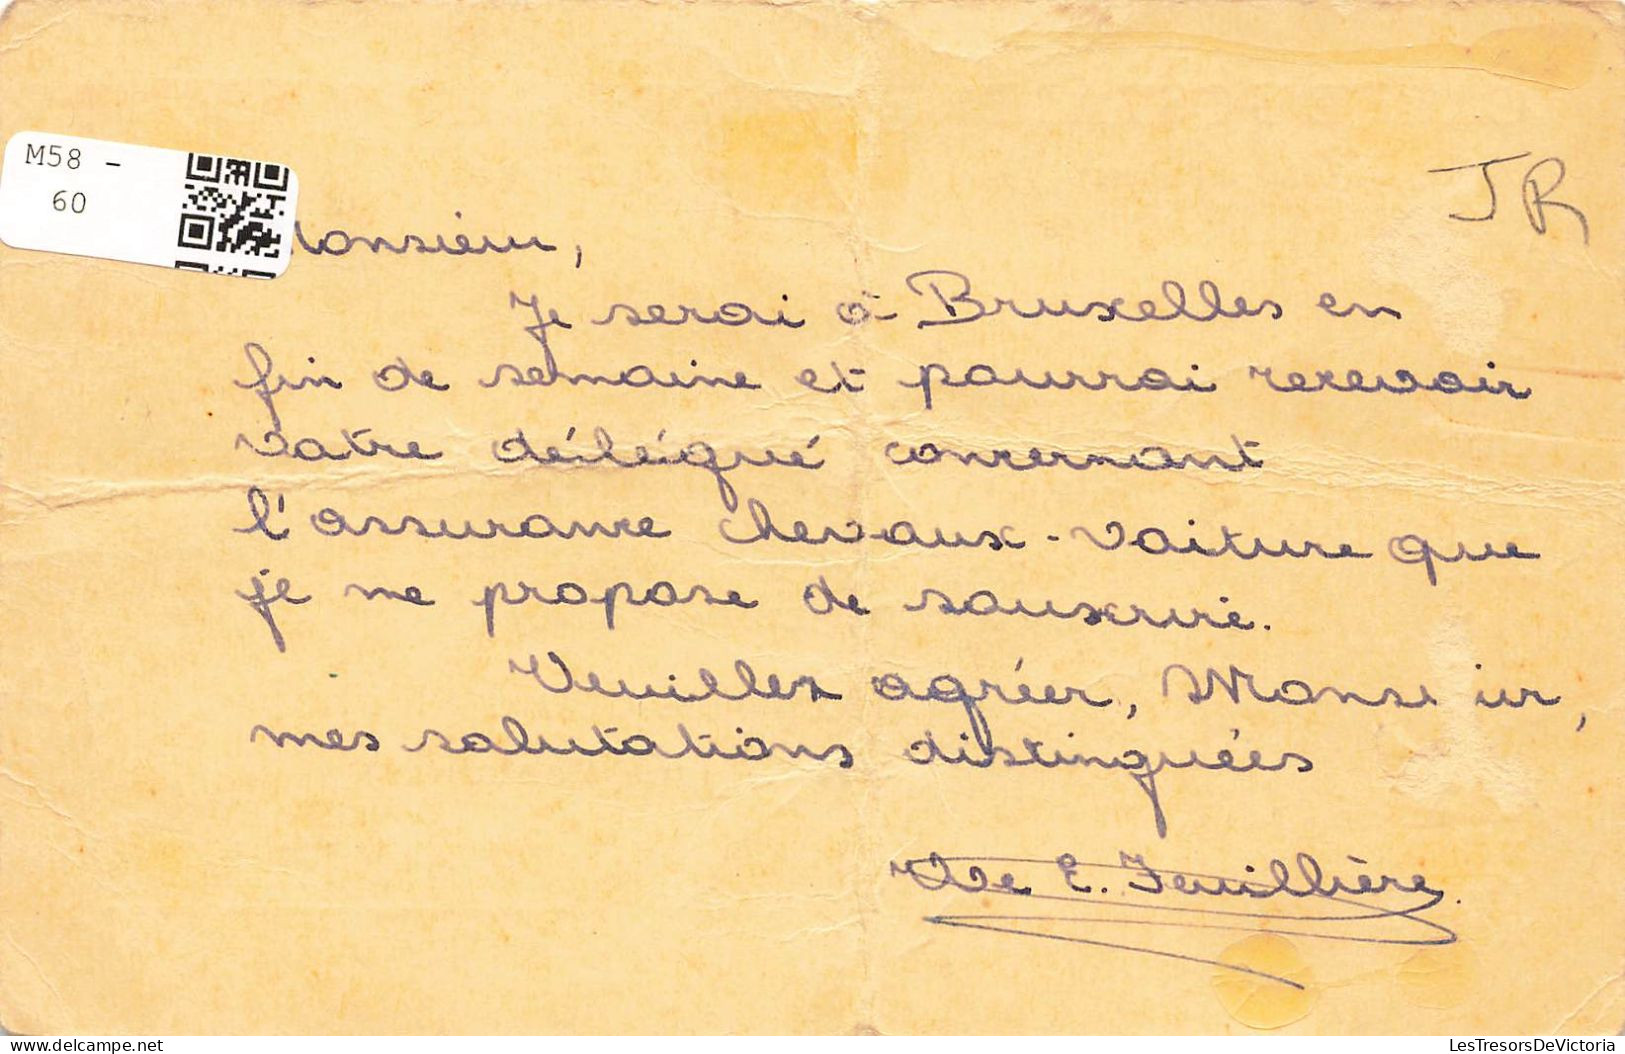 M58 -
60
JR
Monsieur,
Je serai à Bruxelles en
fin de semaine et pourrai recevoir
votre délégué concernant
l'assurance chevaux-voiture que
je me propose de souscrire.
Veuillez agréer, Monsieur,
mes salutations distinguées
Vve E. Feuillière.
delcampe.net
LesTresorsDeVictoria